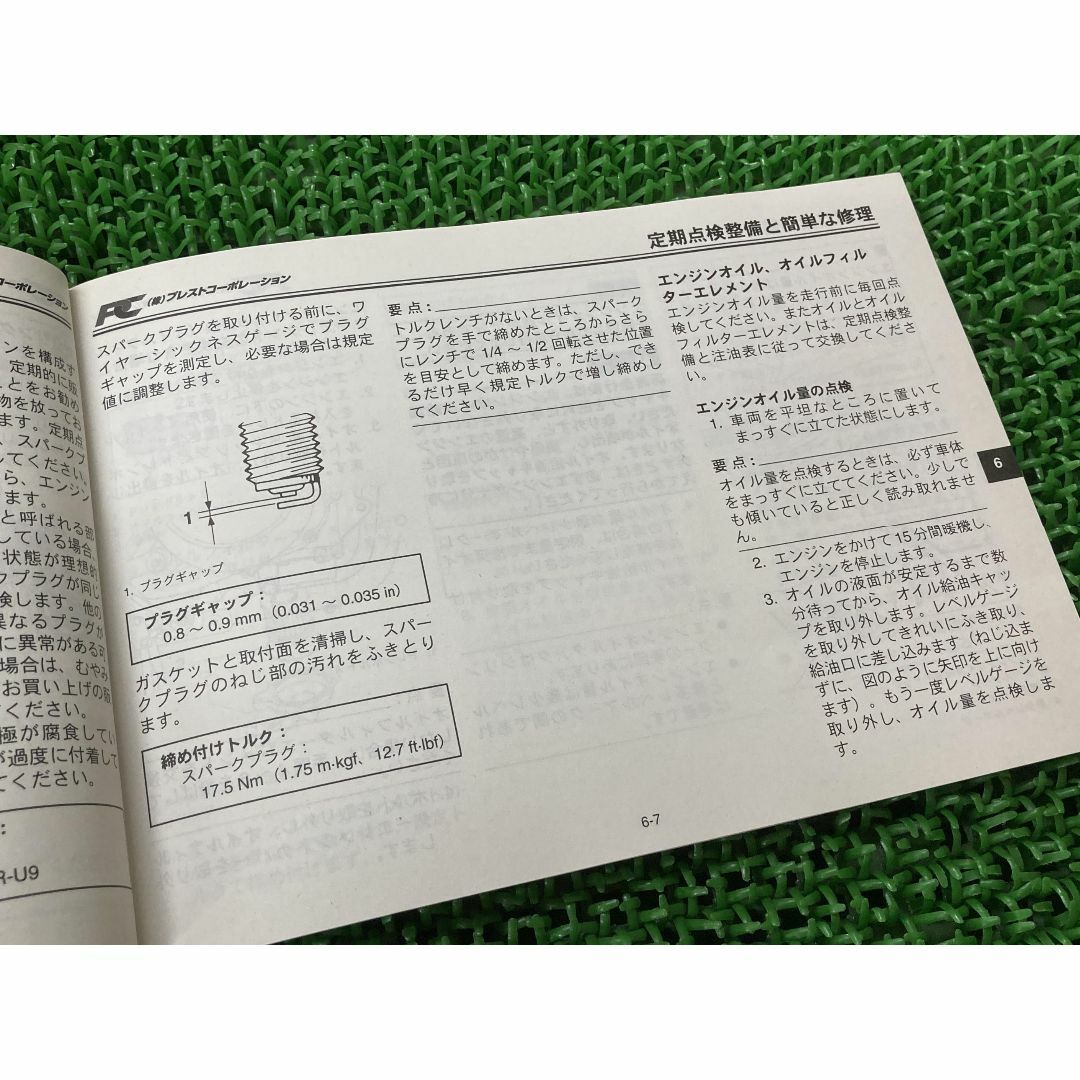 コーポレーション
ンを構成す
定期的に販
ことをお勧め
物を放ってお
ます。定期点
、スパークプ
してください。
ら、エンジン
ます。
と呼ばれる部
している場合、
状態が理想的
クプラグが同じ
検します。他の
異なるプラグが
に異常がある可
場合は、むやみ
お買い上げの販
ください。
極が腐食してい
が過度に付着して
てください。
:
R-U9
PC (株)プレストコーポレーション
定期点検整備と簡単な修理
スパークプラグを取り付ける前に、ワ
イヤーシックネスゲージでプラグ
ギャップを測定し、必要な場合は規定
値に調整します。
1
1. プラグギャップ
プラグギャップ:
0.8 ~ 0.9 mm (0.031 ~ 0.035 in)
ガスケットと取付面を清掃し、スパー
クプラグのねじ部の汚れをふきとり
ます。
締め付けトルク:
スパークプラグ:
17.5 Nm (1.75 m·kgf、12.7 ft·lbf)
要点:
トルクレンチがないときは、スパーク
プラグを手で締めたところからさら
にレンチで 1/4 ~ 1/2 回転させた位置
を目安として締めます。ただし、でき
るだけ早く規定トルクで増し締めし
てください。
エンジンオイル、オイルフィル
ターエレメント
エンジンオイル量を走行前に毎回点
検してください。またオイルとオイル
フィルターエレメントは、定期点検整
備と注油表に従って交換してくださ
い。
エンジンオイル量の点検
1. 車両を平坦なところに置いて
まっすぐに立てた状態にします。
要点:
オイル量を点検するときは、必ず車体
をまっすぐに立ててください。少しで
も傾いていると正しく読み取れませ
ん。
2. エンジンをかけて15分間暖機し、
エンジンを停止します。
3. オイルの液面が安定するまで数
分待ってから、オイル給油キャッ
プを取り外します。レベルゲージ
を取り外してきれいにふき取り、
給油口に差し込みます（ねじ込ま
ずに、図のように矢印を上に向け
ます）。もう一度レベルゲージを
取り外し、オイル量を点検しま
す。
6
6-7